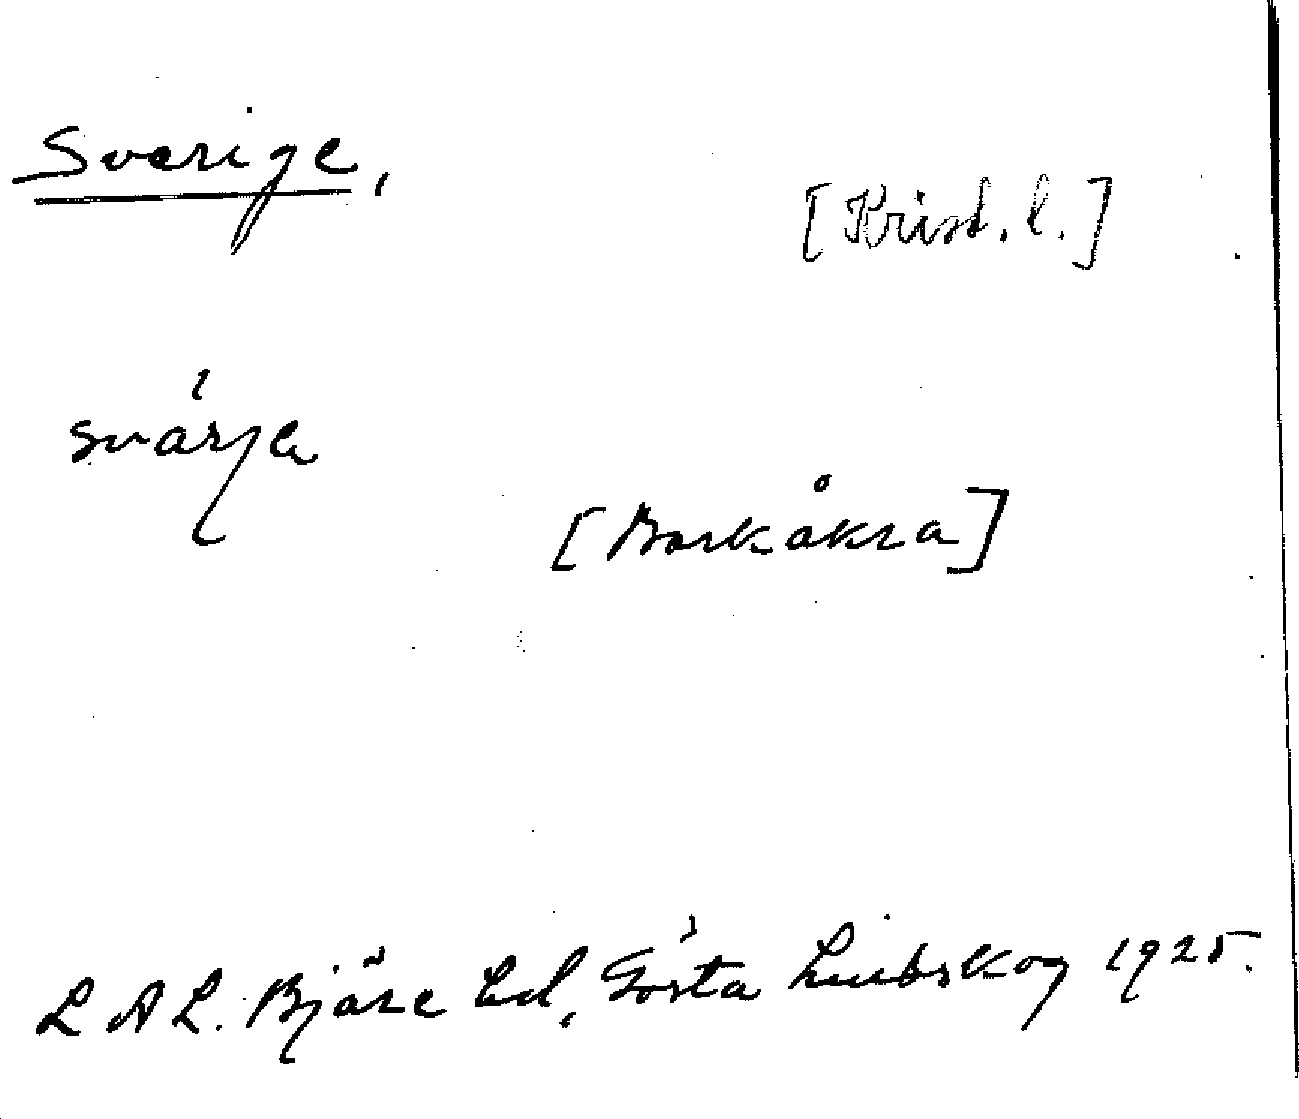 Sverige,
[Krist. l.]
svärja
[Barkåkra]
L A L. Bjäre hd, Gösta Lindskog 1925.